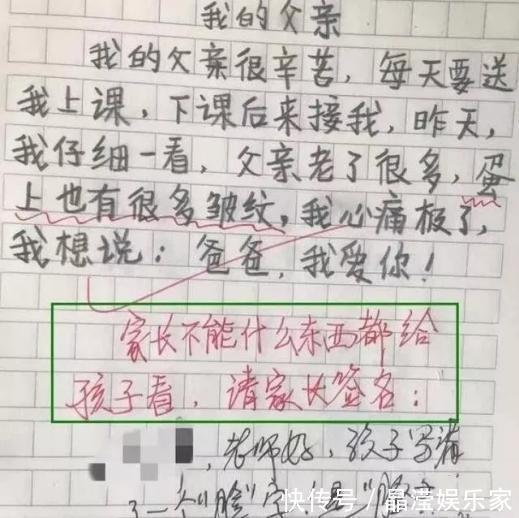 我的父亲
我的父亲很辛苦，每天要送
我上课，下课后来接我，昨天，
我仔细一看，父亲老了很多，蛋
上也有很多皱纹，我心痛极了，
我想说：爸爸，我爱你！
家长不能什么东西都给
孩子看，请家长签名：
，老师好，孩子写漏
了一个“脸”字，是“脸
快传号／晶滢娱乐家